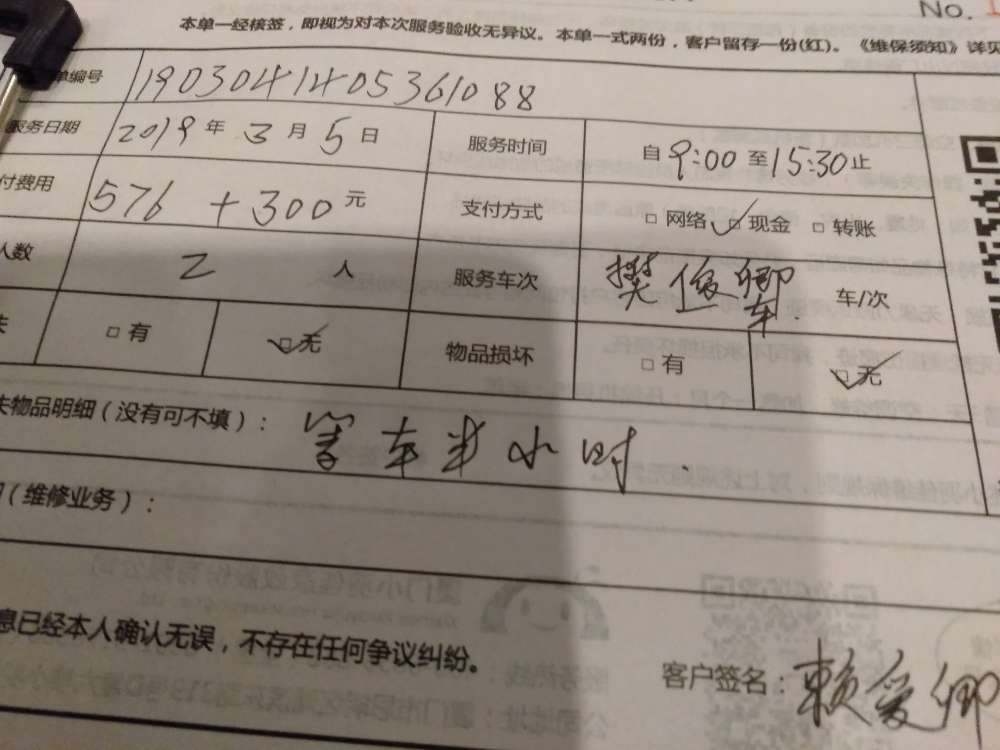 No.
本单一经核签，即视为对本次服务验收无异议。本单一式两份，客户留存一份(红)。《维保须知》详见
单编号 1903041405361088
服务日期 2019年3月5日 服务时间 自9:00至15:30止
付费用 576+300元 支付方式 □网络 ☑现金 □转账
人数 2人 服务车次 车/次
失 □有 ☑无 物品损坏 □有 ☑无
失物品明细（没有可不填）： 等车半小时.
（维修业务）：
息已经本人确认无误，不存在任何争议纠纷。
客户签名：赖爱卿